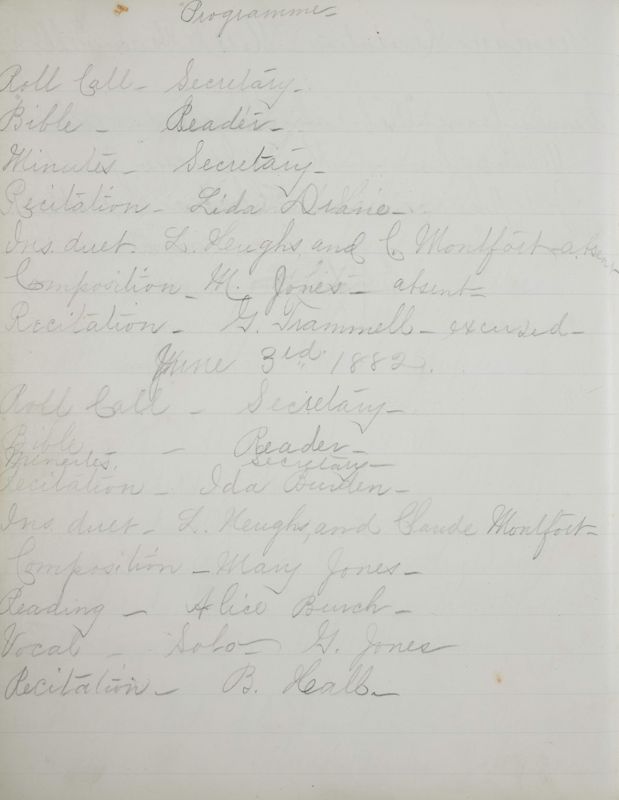 Programme-
Roll Call - Secretary-
Bible - Reader-
Minutes - Secretary-
Recitation - Lida Drane-
Ins. duet. L. Heughs, and C. Montfort - absent
Composition - M. Jones - absent-
Recitation - G. Trammell - excused-
June 3rd 1882.
Roll Call - Secretary-
Bible - Reader-
Minutes. Secretary-
Recitation - Ida Burden-
Ins. duet - L. Heughs, and Claude Montfort-
Composition - Mary Jones-
Reading - Alice Burch-
Vocal - Solo - G. Jones
Recitation - B. Hall-